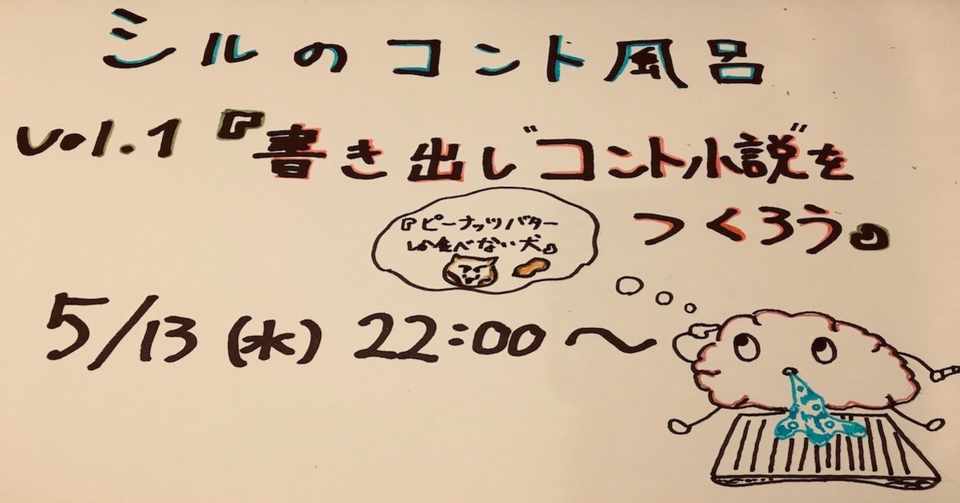 シルのコント風呂
vol.1『書き出し"コント小説"を
つくろう』
『ピーナッツバター
しか食べない犬』
5/13(水) 22:00〜